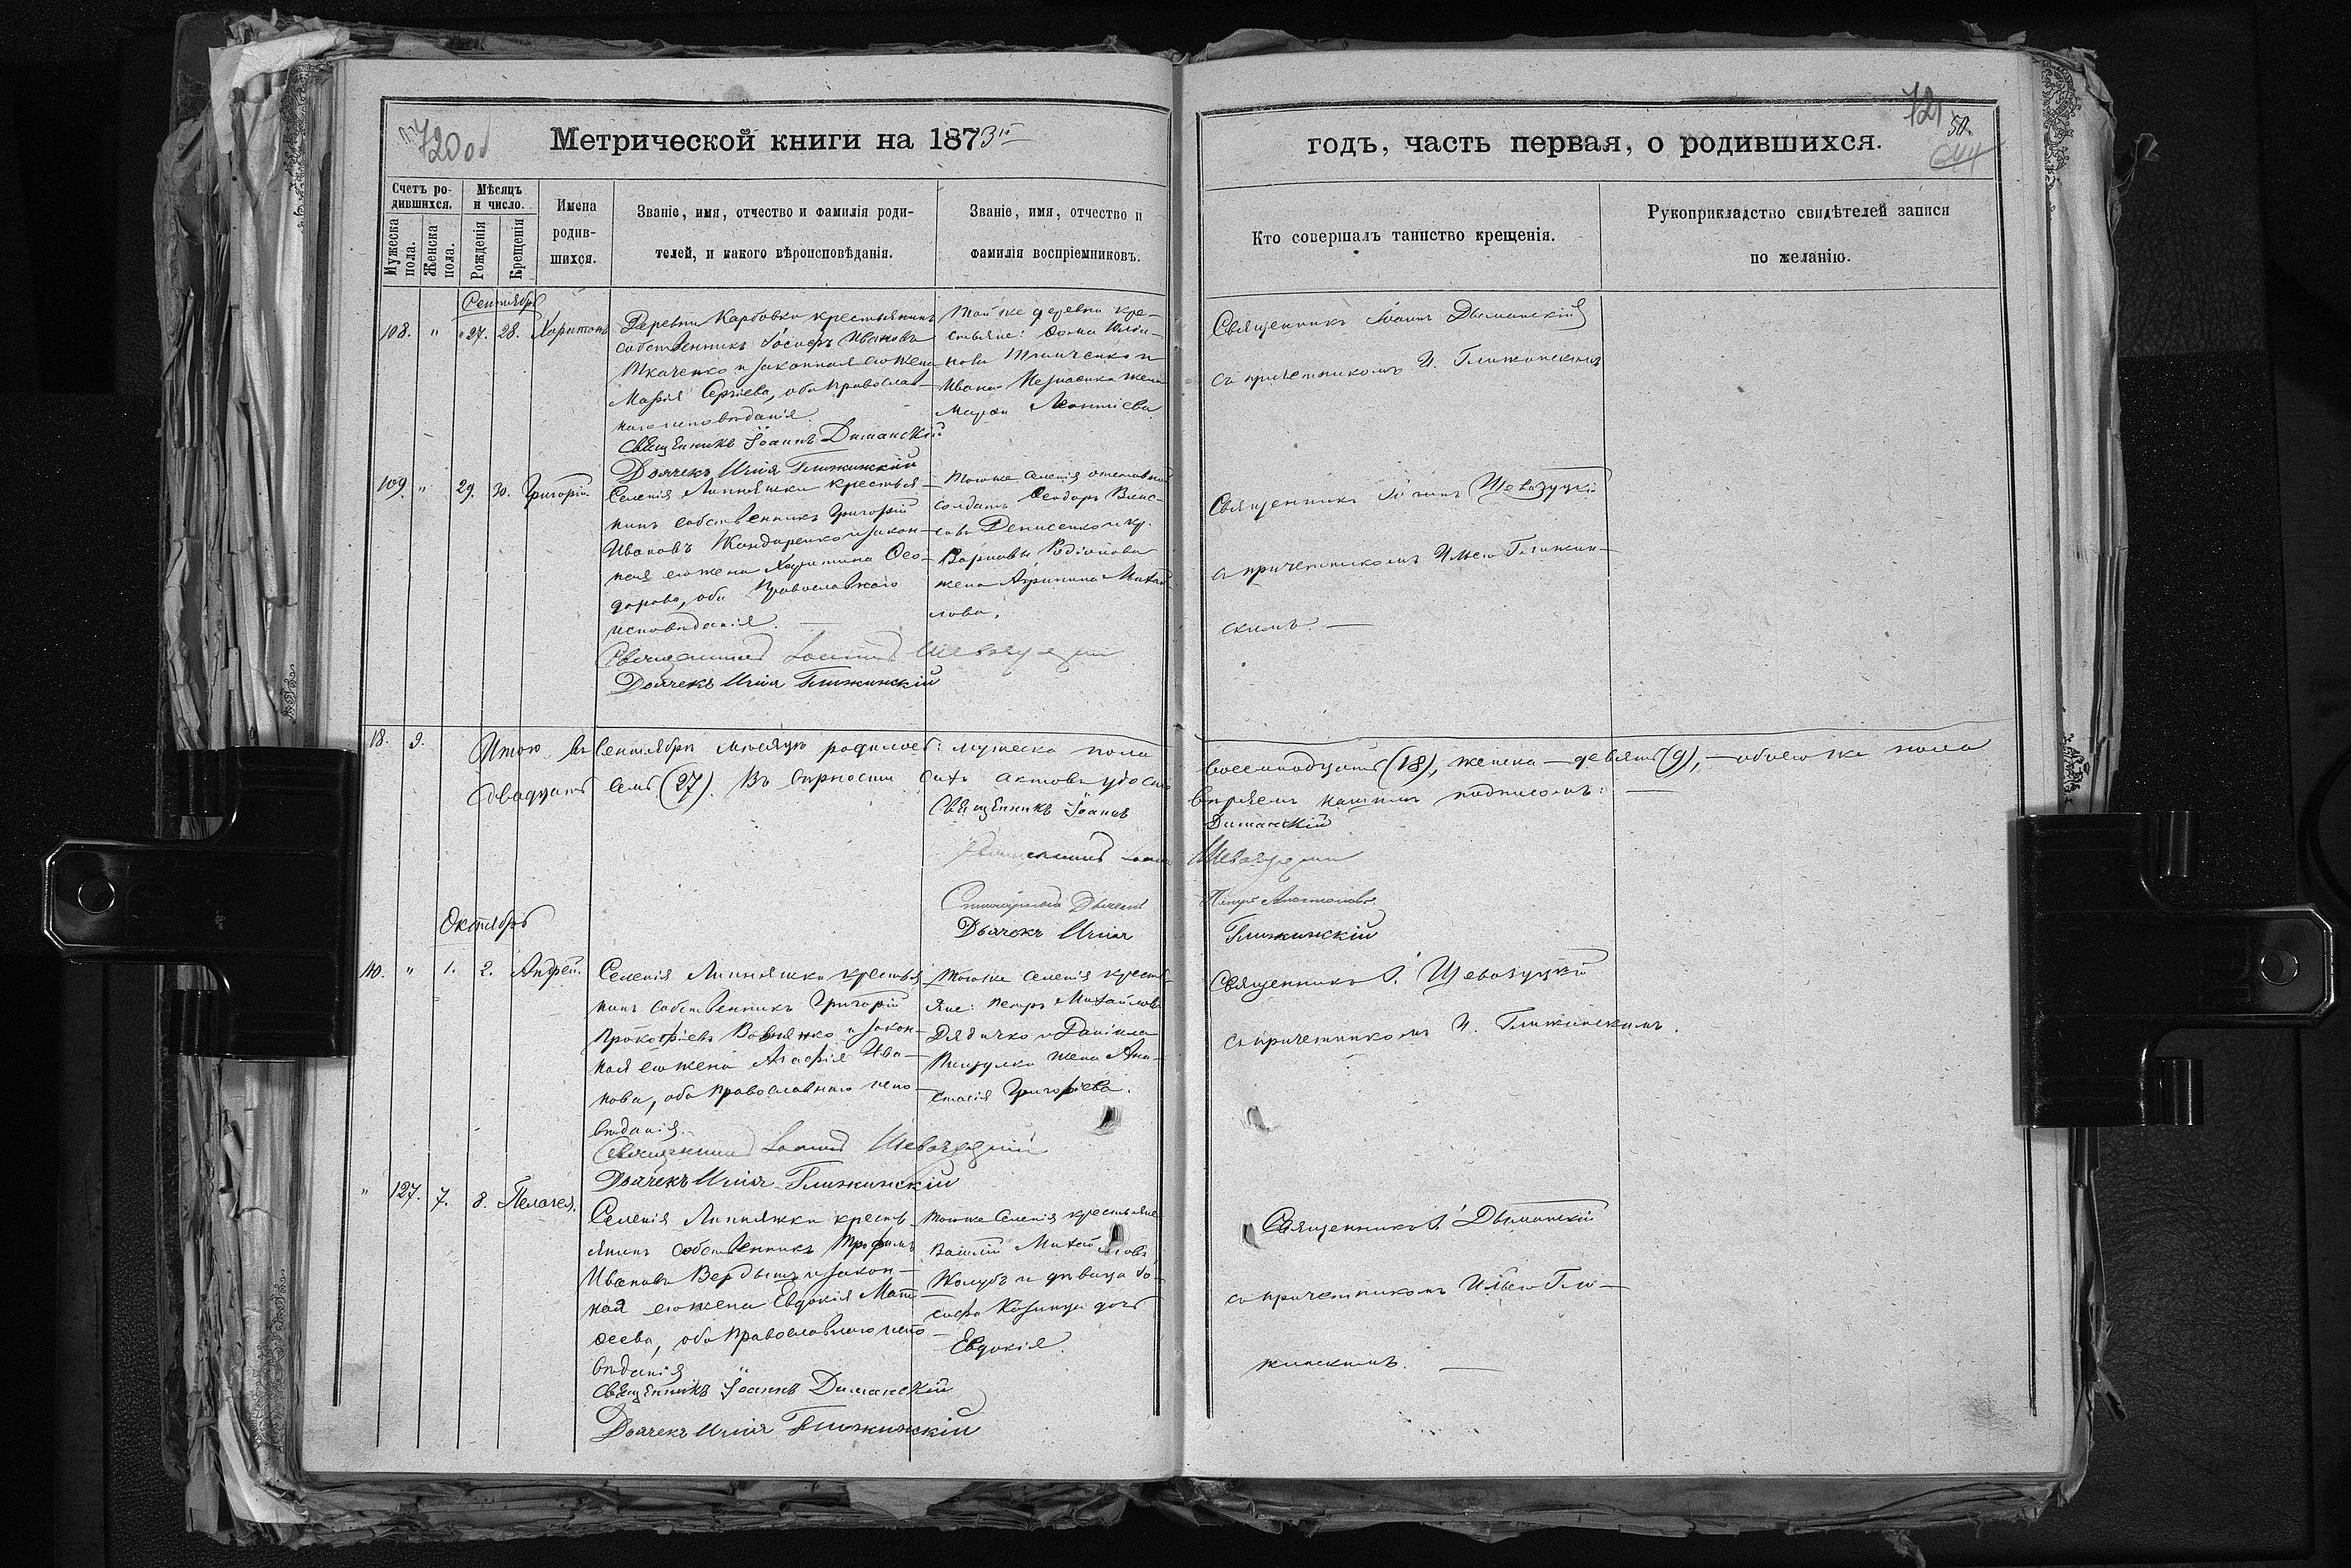 720 об
Метрической книги на 1873й
годъ, часть первая, о родившихся.
721
50.
Счетъ ро-
дившихся.
Мѣсяцъ
и число.
Мужеска
пола.
Женска
пола.
Рожденія
Крещенія
Имена
родив-
шихся.
Званіе, имя, отчество и фамилія роди-
телей, и какого вѣроисповѣданія.
Званіе, имя, отчество и
фамилія воспріемниковъ.
Кто совершалъ таинство крещенія.
Рукоприкладство свидѣтелей записи
по желанію.
Сентябрь
108. " 27. 28. Харитонъ
Деревни Карбовки крестьянинъ
собственникъ Іосифъ Ивановъ
Ткаченко и законная его жена
Марія Сергіева, оба православ-
наго исповѣданія.
Священникъ Іоаннъ Диманскій
Дьячекъ Илія Глижинскій
Той же деревни кре-
стьяне:
и
Ивана жена
Леонтіева
Священникъ Іоаннъ Дыманскій
съ причетникомъ И. Глижинскимъ
109. " 29. 30. Григорій
Селенія Липняжки крестья-
нинъ собственникъ Григорій
Ивановъ Жондаренко и закон-
ная его жена Харитина Ѳео-
дорова, оба Православнаго
исповѣданія. —
Священникъ Іоаннъ Шевазуцкій
Дьячекъ Илія Глижинскій
Тогоже селенія отставный
солдатъ Ѳеодоръ Влас-
овъ Денисенко и кр.
Родіонова
жена Агрипина Михай-
лова.
Священникъ Іоаннъ Шевазуцкій
съ причетникомъ Ильею Глижин-
скимъ. —
18. 9. Итого въ Сентябрѣ мѣсяцѣ родилось: мужеска пола восемнадцать (18), женска — девять (9), — обоего же пола
двадцать семь (27). Въ вѣрности сихъ актовъ удосто вѣряемъ нашимъ подписомъ: —
Священникъ Іоаннъ Диманскій
Священникъ Іоаннъ Шевазуцкій
Дьячекъ Илія Глижинскій
Октябрь
110. " 1. 2. Андрей.
Селенія Липняжки крестья-
нинъ собственникъ Григорій
Прокофіевъ и закон-
ная его жена Агафія Ива-
нова, оба православнаго испо-
вѣданія.
Священникъ Іоаннъ Шевазуцкій
Дьячекъ Илія Глижинскій
Тогоже селенія кресть-
яне: Петръ Михайловъ
Дядичко и Даніила
жена Ана-
стасія Григоріева.
Священникъ І. Шевазуцкій
съ причетникомъ И. Глижинскимъ.
" 127. 7. 8. Пелагея.
Селенія Липняжки кресть-
янинъ собственникъ Трофимъ
Ивановъ Вердышъ и закон-
ная его жена Евдокія Мат-
ѳеева, оба православнаго испо-
вѣданія
Священникъ Іоаннъ Диманскій
Дьячекъ Илія Глижинскій
Тогоже селенія крестьяне
Василій Михайловъ
Жолубъ и дѣвица Іо-
сифа дочь
Евдокія.
Священникъ І. Дыманскій
съ причетникомъ Ильею Гли-
жинскимъ. —